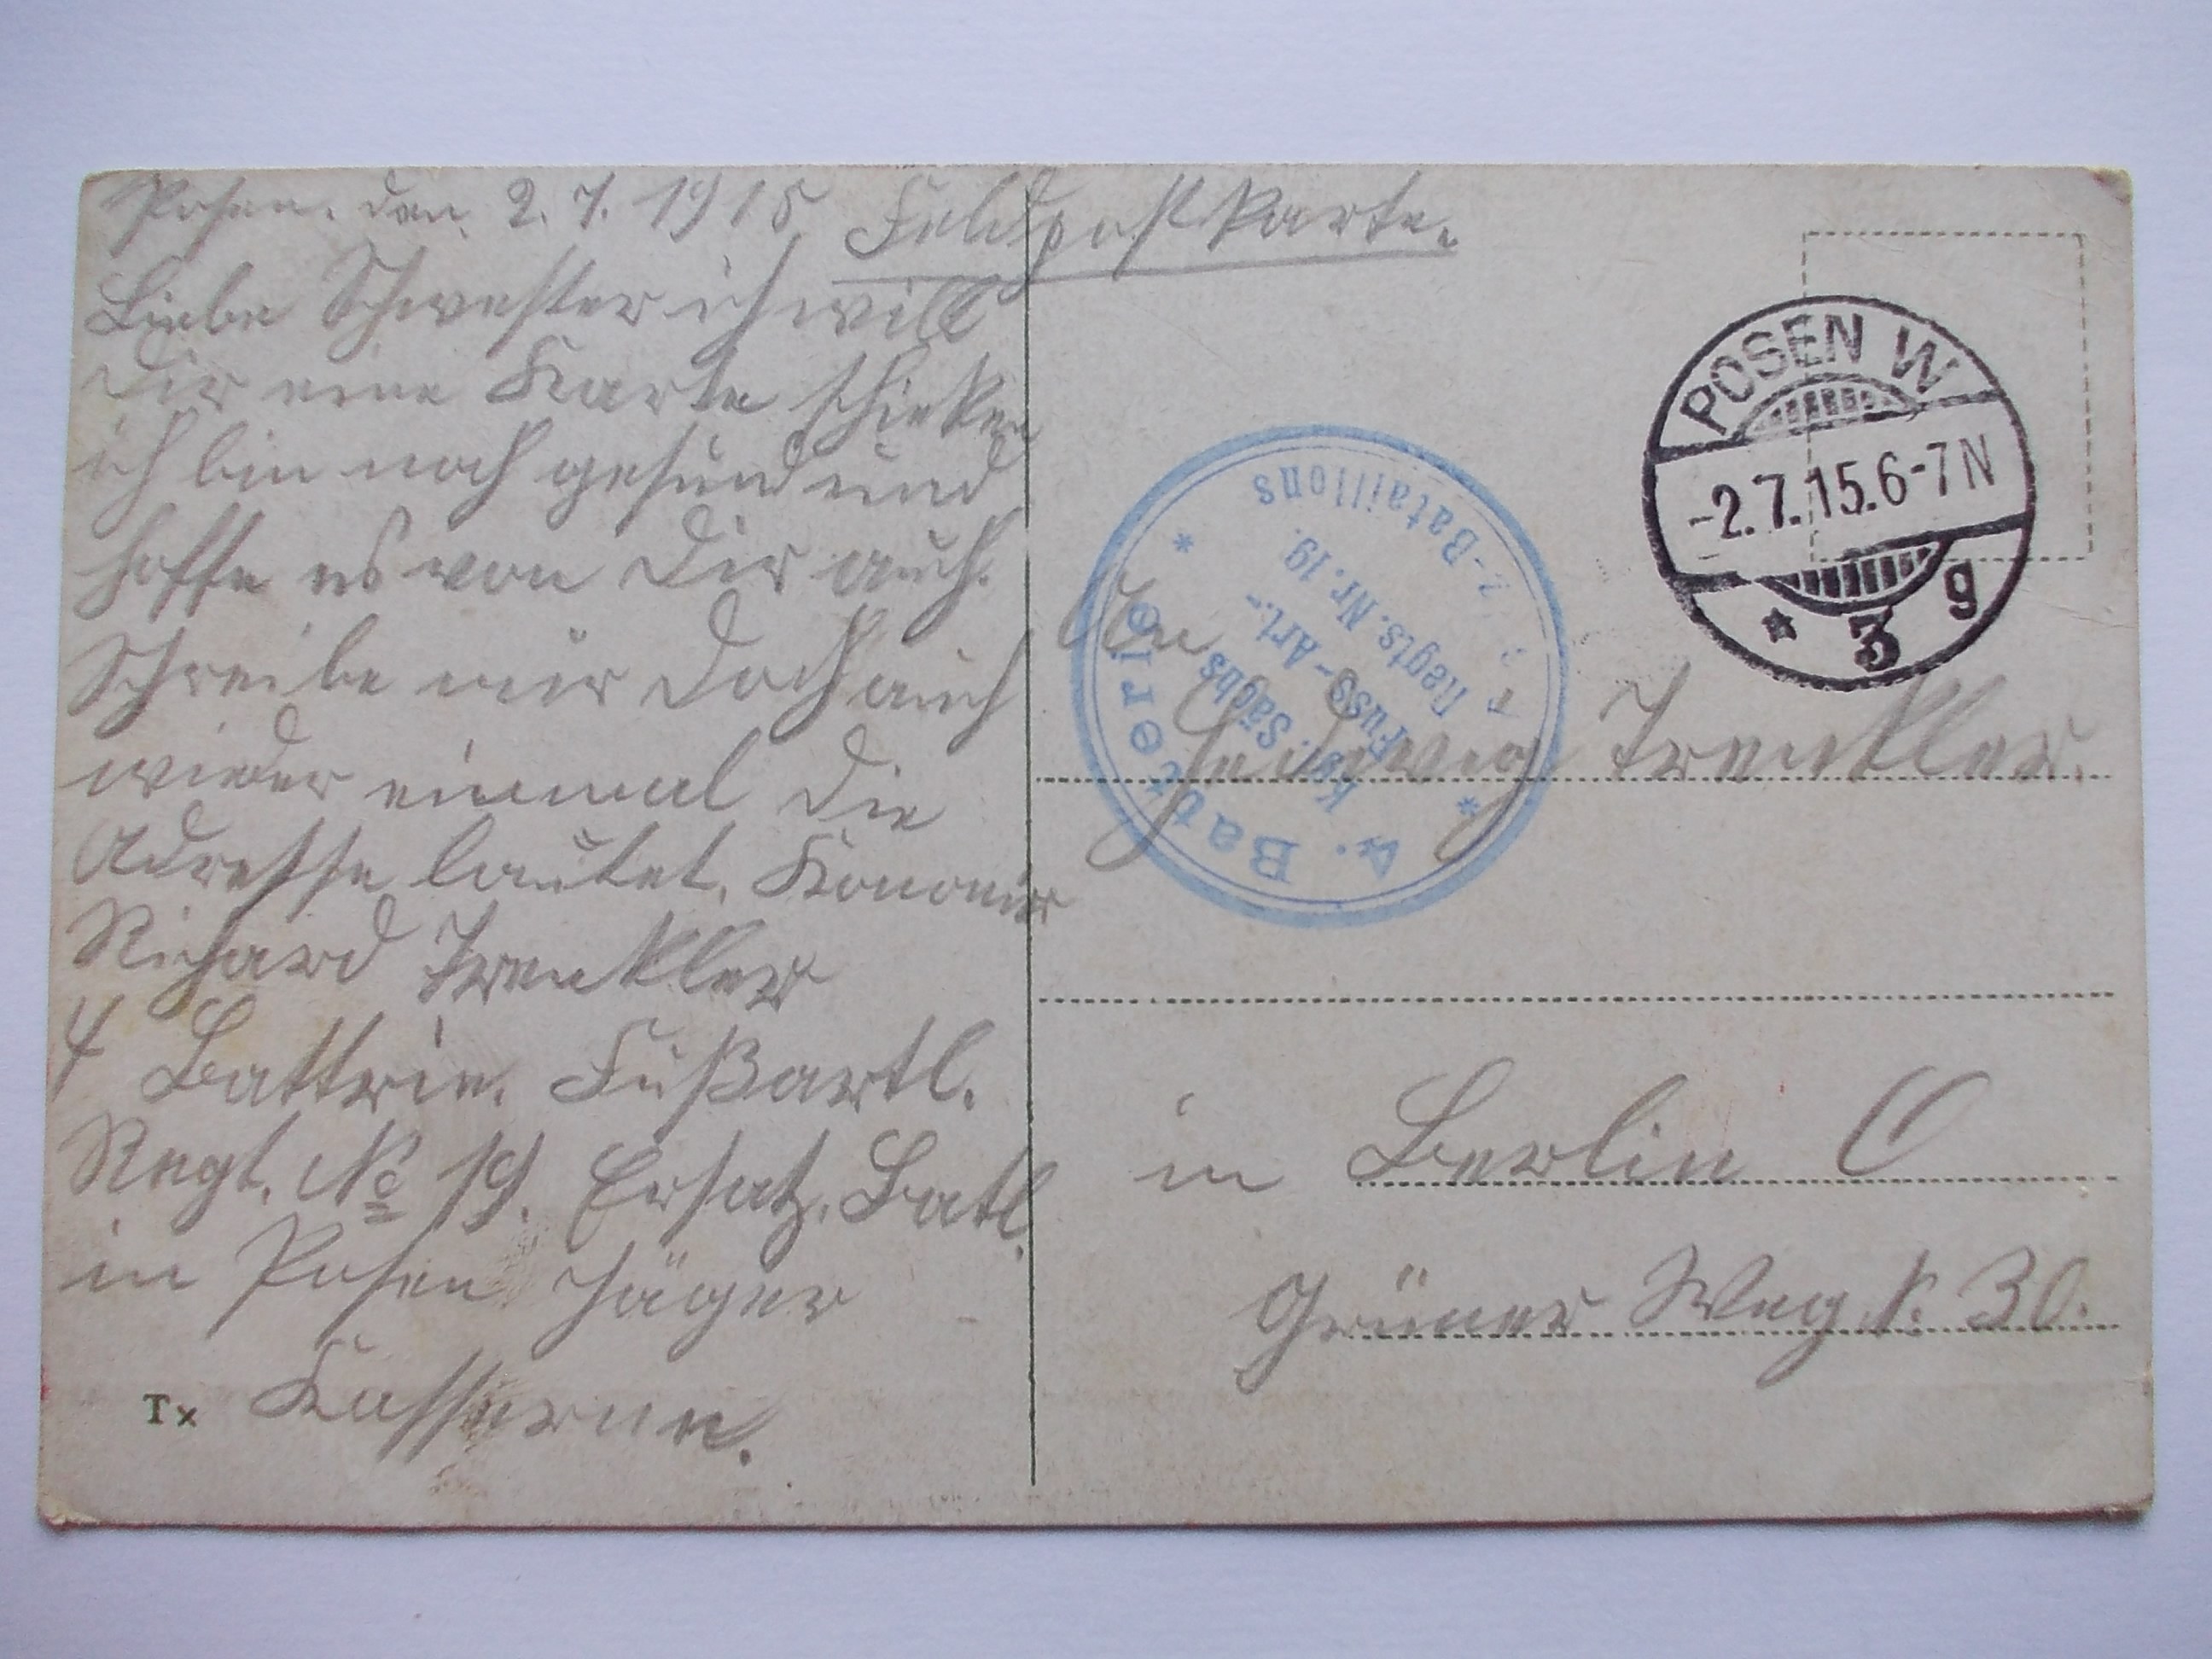 Posen. den. 2. 7. 1915
Feldpostkarte.
Liebe Schwester ich will
Dir eine Karte schicken
ich bin noch gesund und
hoffe es von Dir auch.
Schreibe mir doch auch
wieder einmal die
Adresse lautet. Kanonier
Richard Trenkler
4 Battrie. Fußartl.
Regt. No 19. Ersatz. Batl.
in Posen Jäger
Kasserne.
Tx
POSEN W
-2.7.15.6-7N
* 3 g
4. Batterie
Kgl. Sächs
Fuss-Art.-
Regts. Nr. 19.
-Bataillons
An
Hedwig Trenkler.
in Berlin O
Grüner Weg N. 30.